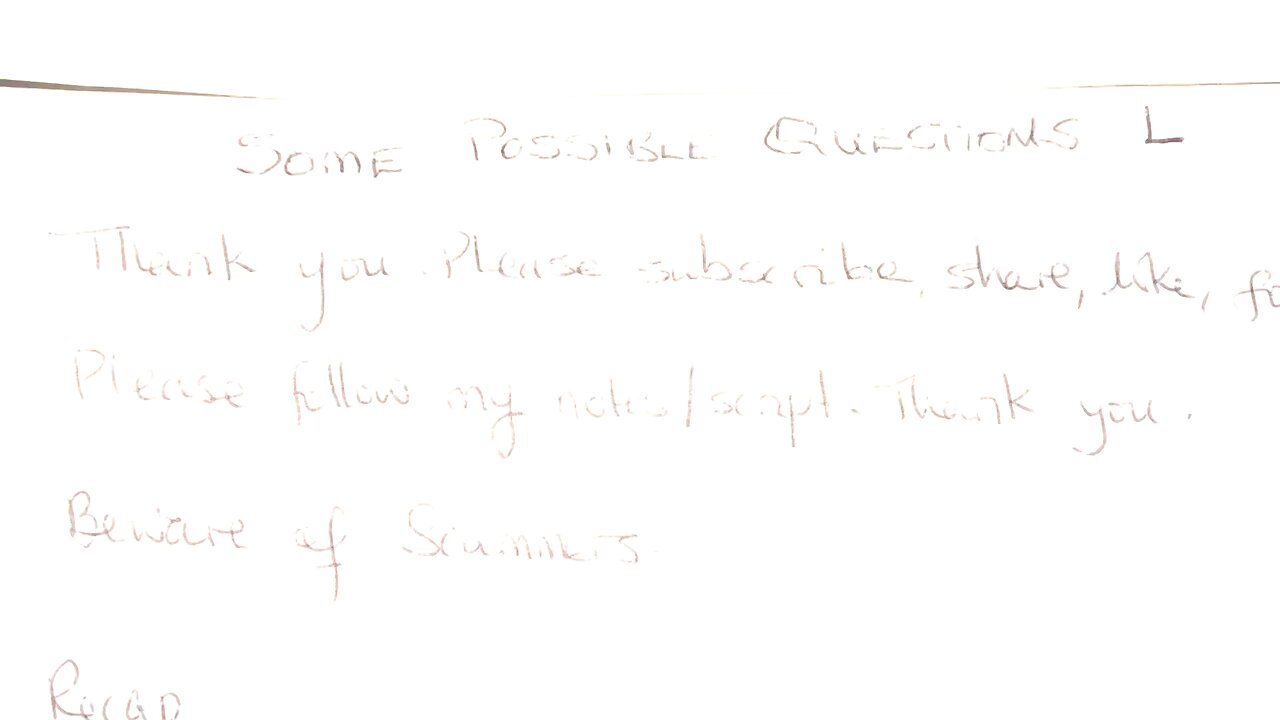 SOME POSSIBLE QUESTIONS L
Thank you. Please subscribe, share, like, fo
Please follow my notes/script. Thank you.
Beware of Scammers
Recap